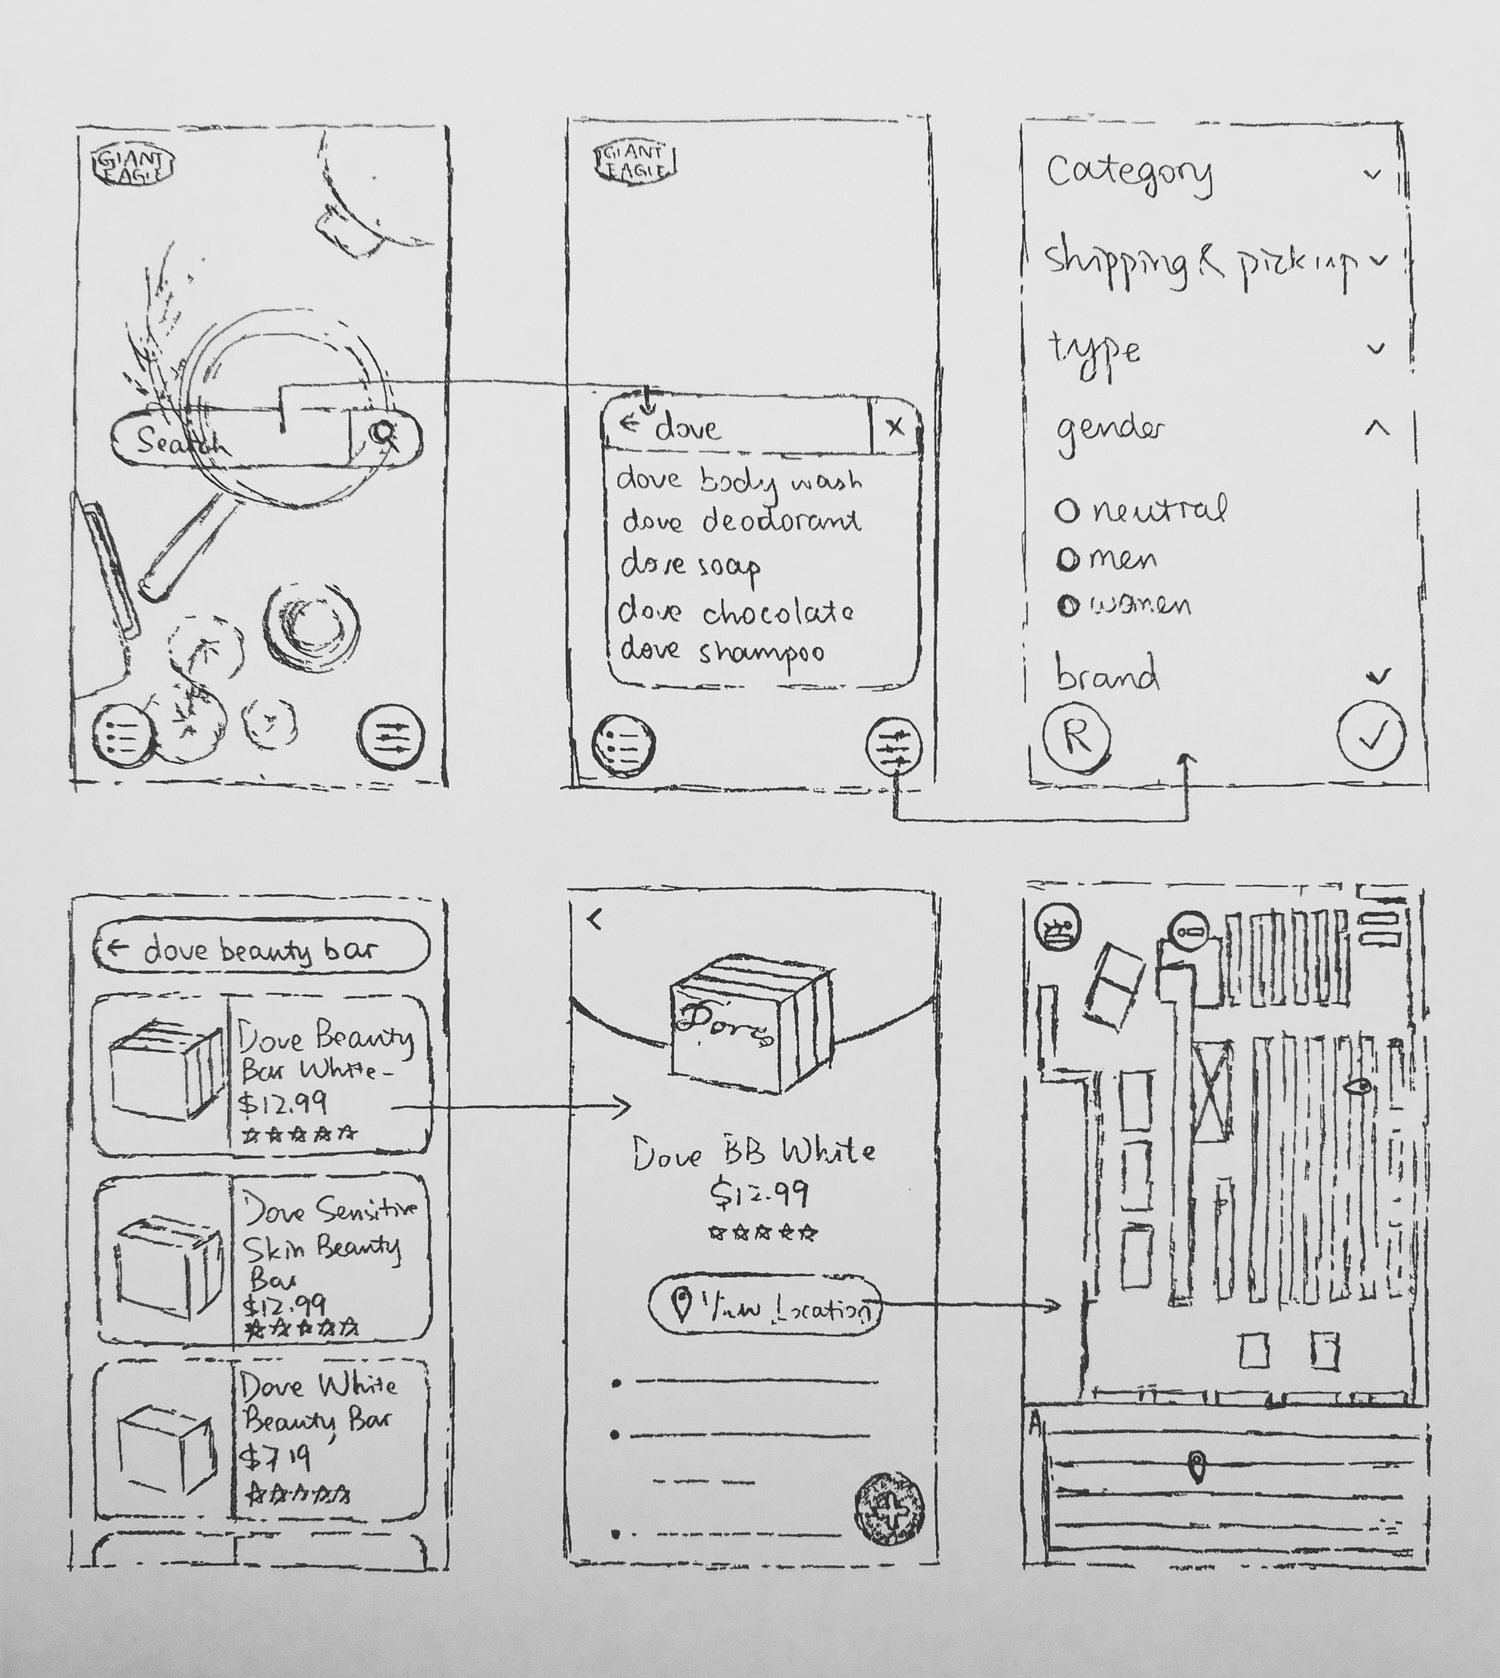 GIANT
EAGLE
Search
GIANT
EAGLE
dove
dove body wash
dove deodorant
dove soap
dove chocolate
dove shampoo
Category
shipping & pickup
type
gender
neutral
men
women
brand
R
dove beauty bar
Dove Beauty
Bar White-
$12.99
Dove Sensitive
Skin Beauty
Bar
$12.99
Dove White
Beauty Bar
$7.19
Dove
Dove BB White
$12.99
View Location
A